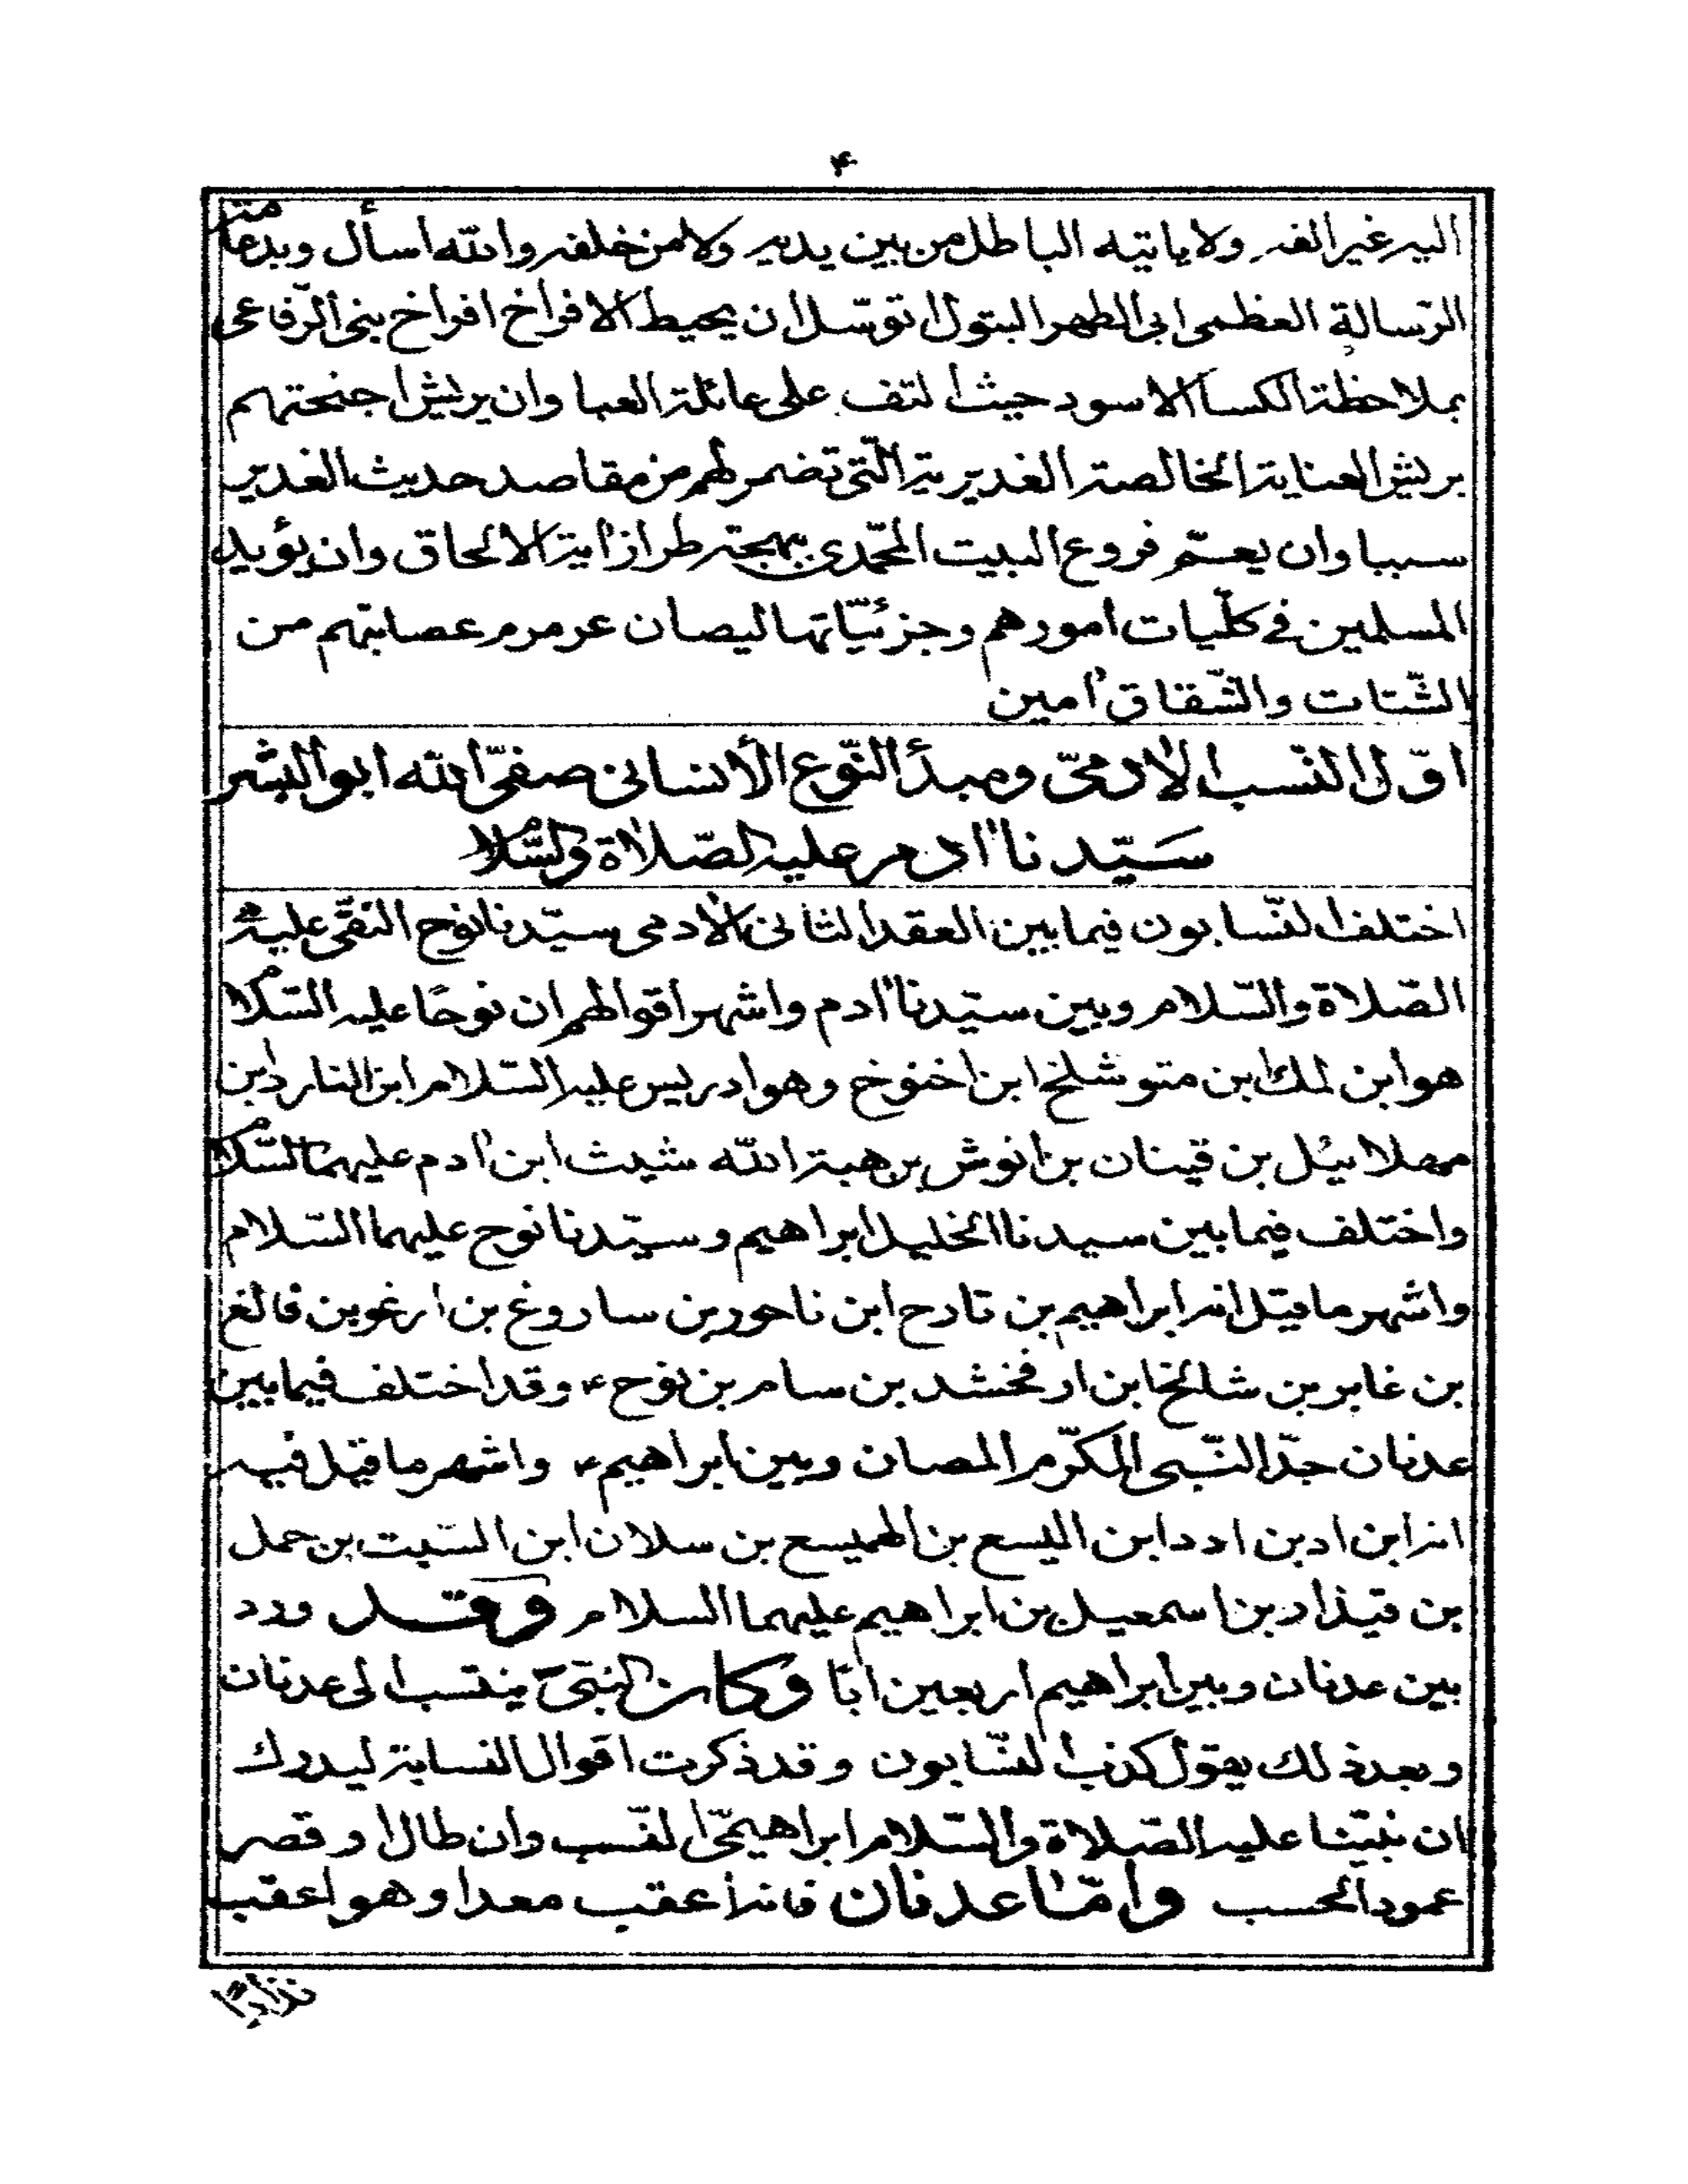 ۴
اليه غير الفه ولا ياتيه الباطل من بين يديه ولا من خلفه والله اسأل وبدعامة
الرّسالة العظمى ابى الطهر البتول اتوسّل ان يحيط الافراخ افراخ بنى الرّفاعى
بملاحظة الكسا الاسود حيث التف على عائلة العبا وان يريش اجنحتهم
بريش العناية الخالصة الغديرية الّتى تضمر لهم من مقاصد حديث الغدير
سببا وان يعمّم فروع البيت المحمّدى ببهجة طراز آية الالحاق وان يؤيد
المسلمين فى كلّيات امورهم وجزئيّاتها ليصان عرمرم عصابتهم من
الشّتات والشّقاق آمين
اوّل النسب الادمىّ ومبدأ النّوع الأنسانى صفىّ الله ابو البشر
سَيّدنا آدم عليه الصّلاة والسّلام
اختلف النّسابون فيما بين العقد الثانى الادمى سيّدنا نوح النقّى عليه
الصّلاة والسّلام وبين سيّدنا آدم واشهر اقوالهم ان نوحًا عليه السّلام
هو ابن لمك ابن متوشلخ ابن اخنوخ وهو ادريس عليه السّلام ابن اليارد ابن
مهلائيل بن قينان بن انوش بن هبة الله شيث ابن آدم عليهما السّلام
واختلف فيما بين سيدنا الخليل ابراهيم وسيّدنا نوح عليهما السّلام
واشهر ما قيل انه ابراهيم بن تارح ابن ناحور بن ساروغ بن ارغو بن فالغ
بن غابر بن شالخ ابن ارفخشد بن سام بن نوح ء وقد اختلف فيما بين
عدنان جدّ النّبى المكرّم المصان وبين ابراهيم ء واشهر ما قيل فيه
انه ابن اد بن ادد ابن اليسع بن الهميسع بن سلامان ابن النبت بن حمل
بن قيذار بن اسمعيل بن ابراهيم عليهما السلام وقد ورد
بين عدنان وبين ابراهيم اربعين ابًا وكان النبىّ ينتسب الى عدنان
وبعد ذلك يقول كذب النسّابون وقد ذكرت اقوال النسابة ليدرك
ان نبيّنا عليه الصّلاة والسّلام ابراهيمىّ النّسب وان طال او قصر
عمود الحسب وامّا عدنان فانه أعقب معدا وهو اعقب
نزارًا